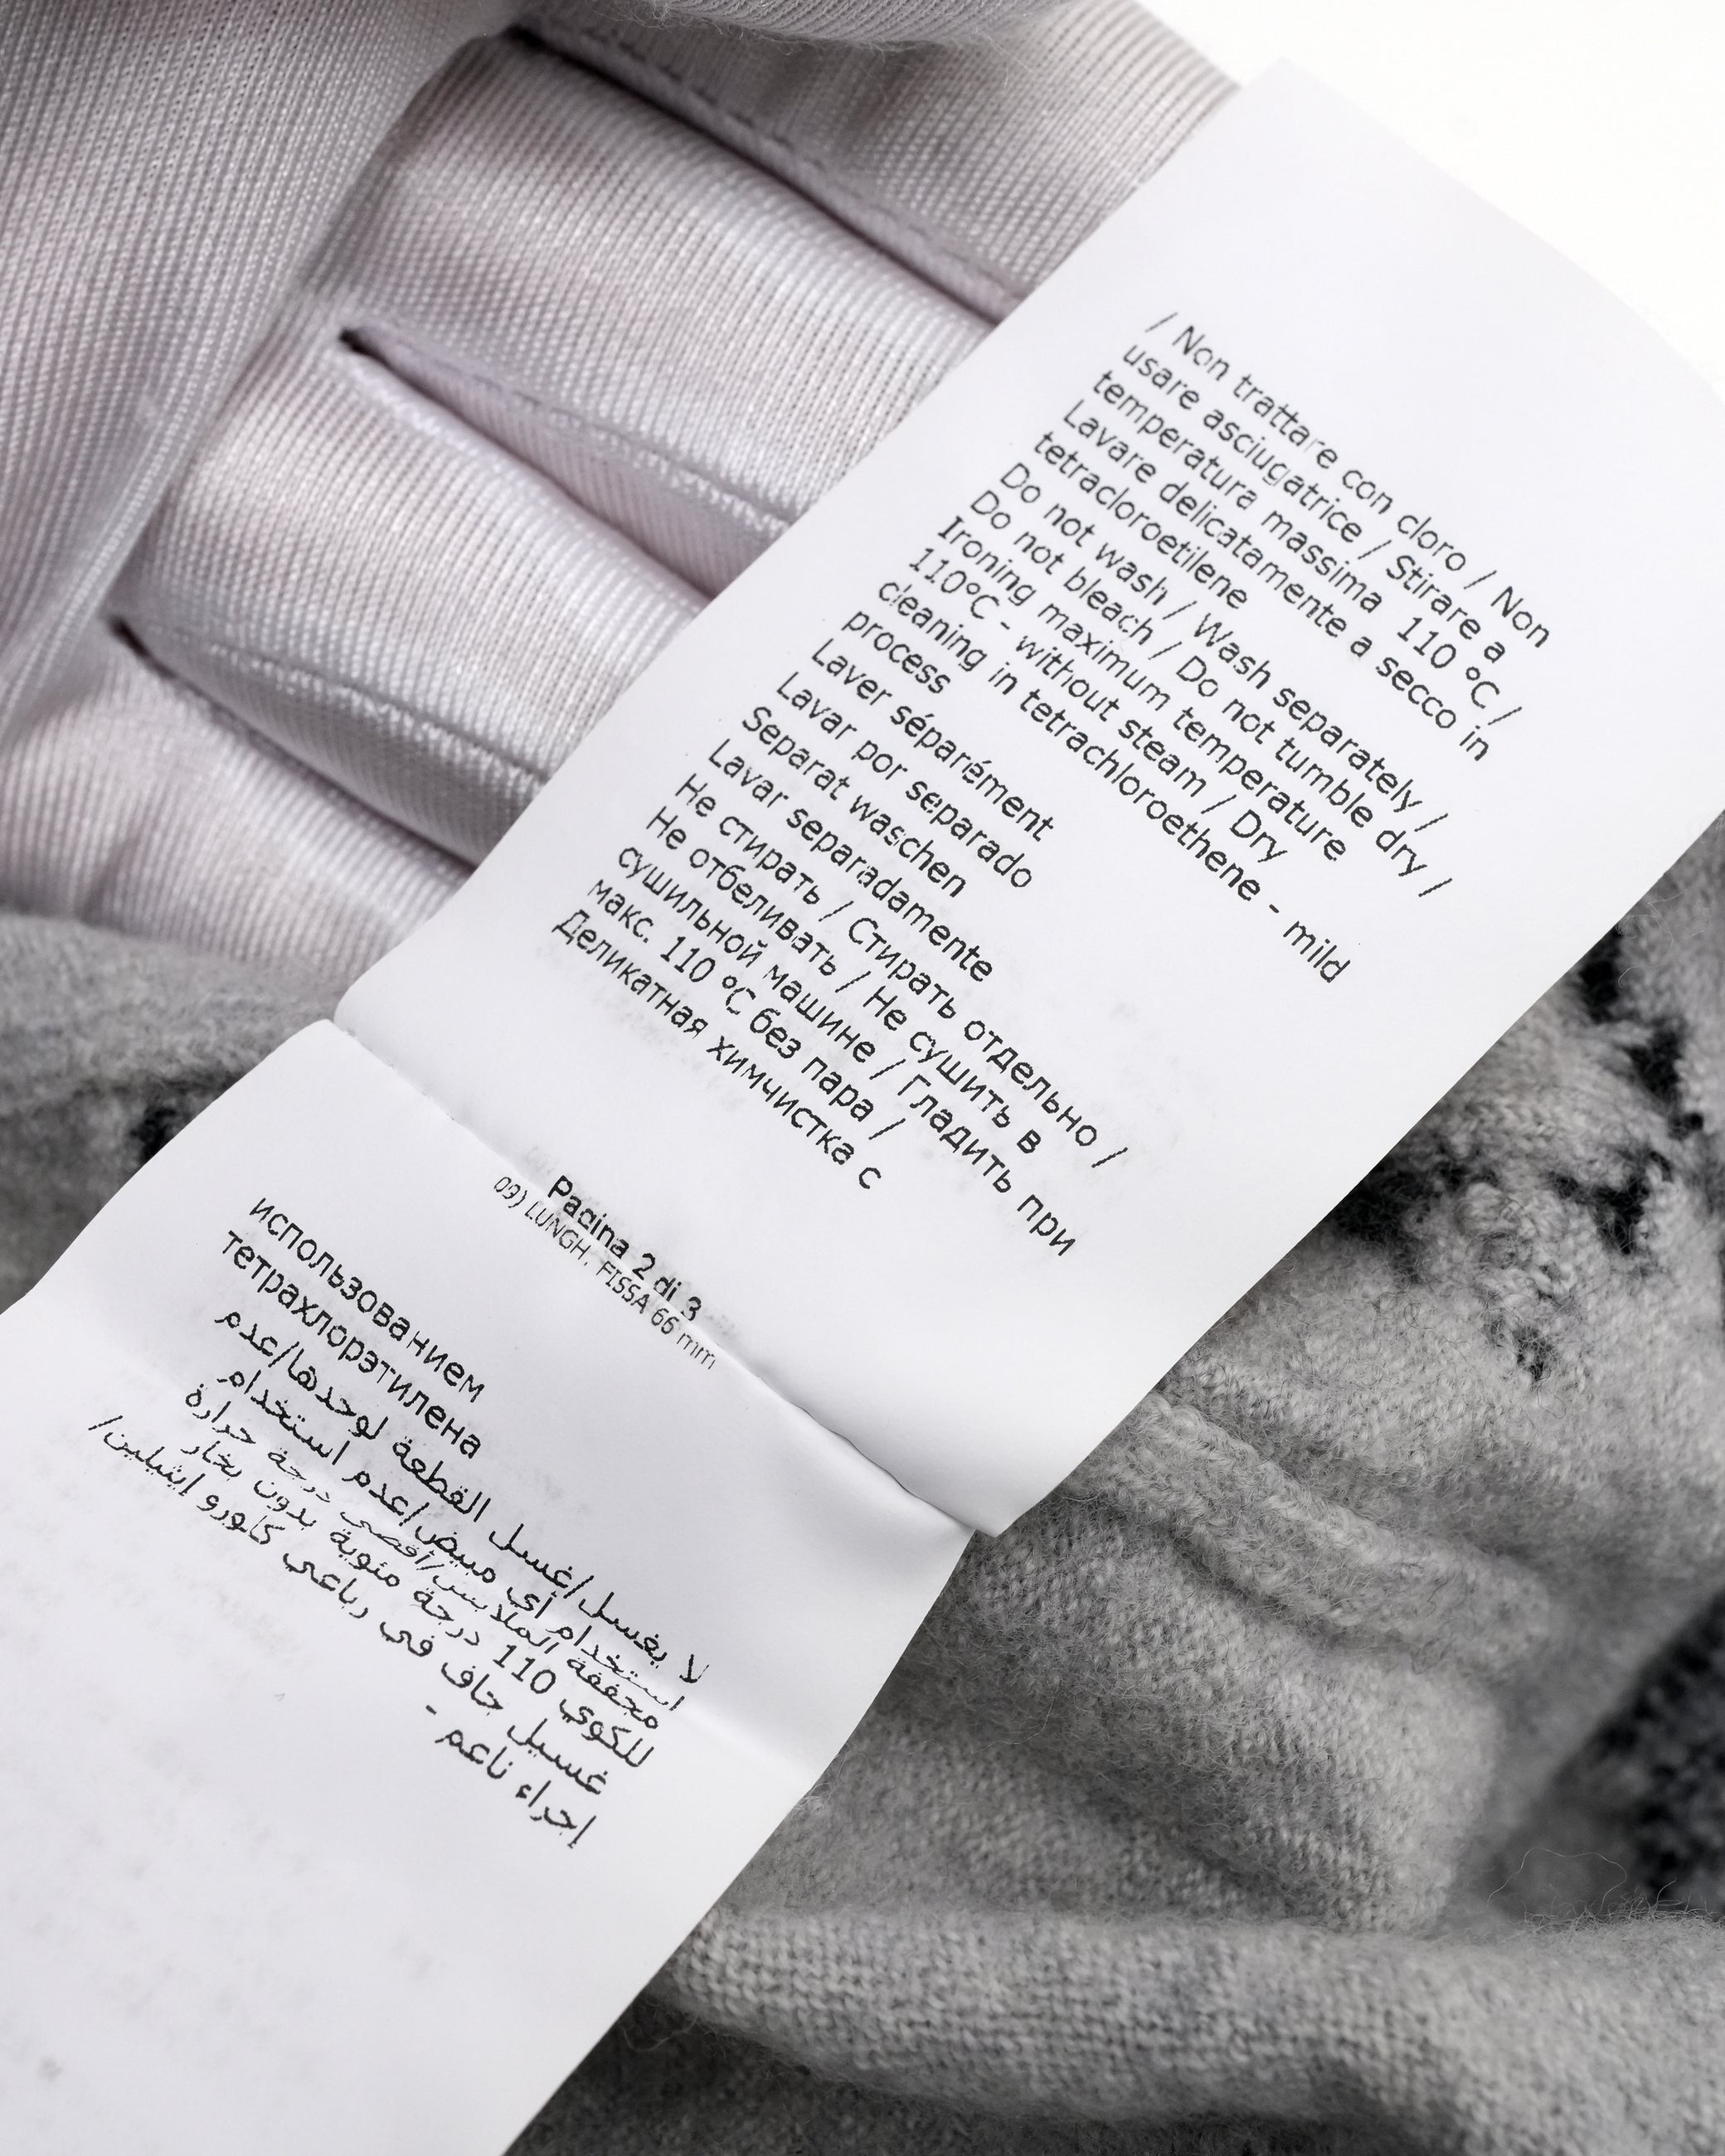 / Non trattare con cloro / Non
usare asciugatrice / Stirare a
temperatura massima 110 °C /
Lavare delicatamente a secco in
tetracloroetilene
Do not wash / Wash separately /
Do not bleach / Do not tumble dry /
Ironing maximum temperature
110°C - without steam / Dry
cleaning in tetrachloroethene - mild
process
Laver séparément
Lavar por separado
Separat waschen
Lavar separadamente
Не стирать / Стирать отдельно /
Не отбеливать / Не сушить в
сушильной машине / Гладить при
макс. 110 °C без пара /
Деликатная химчистка с
Pagina 2 di 3
09) LUNGH. FISSA 66 mm
использованием
тетрахлорэтилена
لا يغسل/غسل القطعة لوحدها/عدم
استخدام أي مبيض/عدم استخدام
مجففة الملابس/أقصى درجة حرارة
للكوي 110 درجة مئوية بدون بخار
غسيل جاف في رباعي كلورو إيثيلين/
إجراء ناعم -